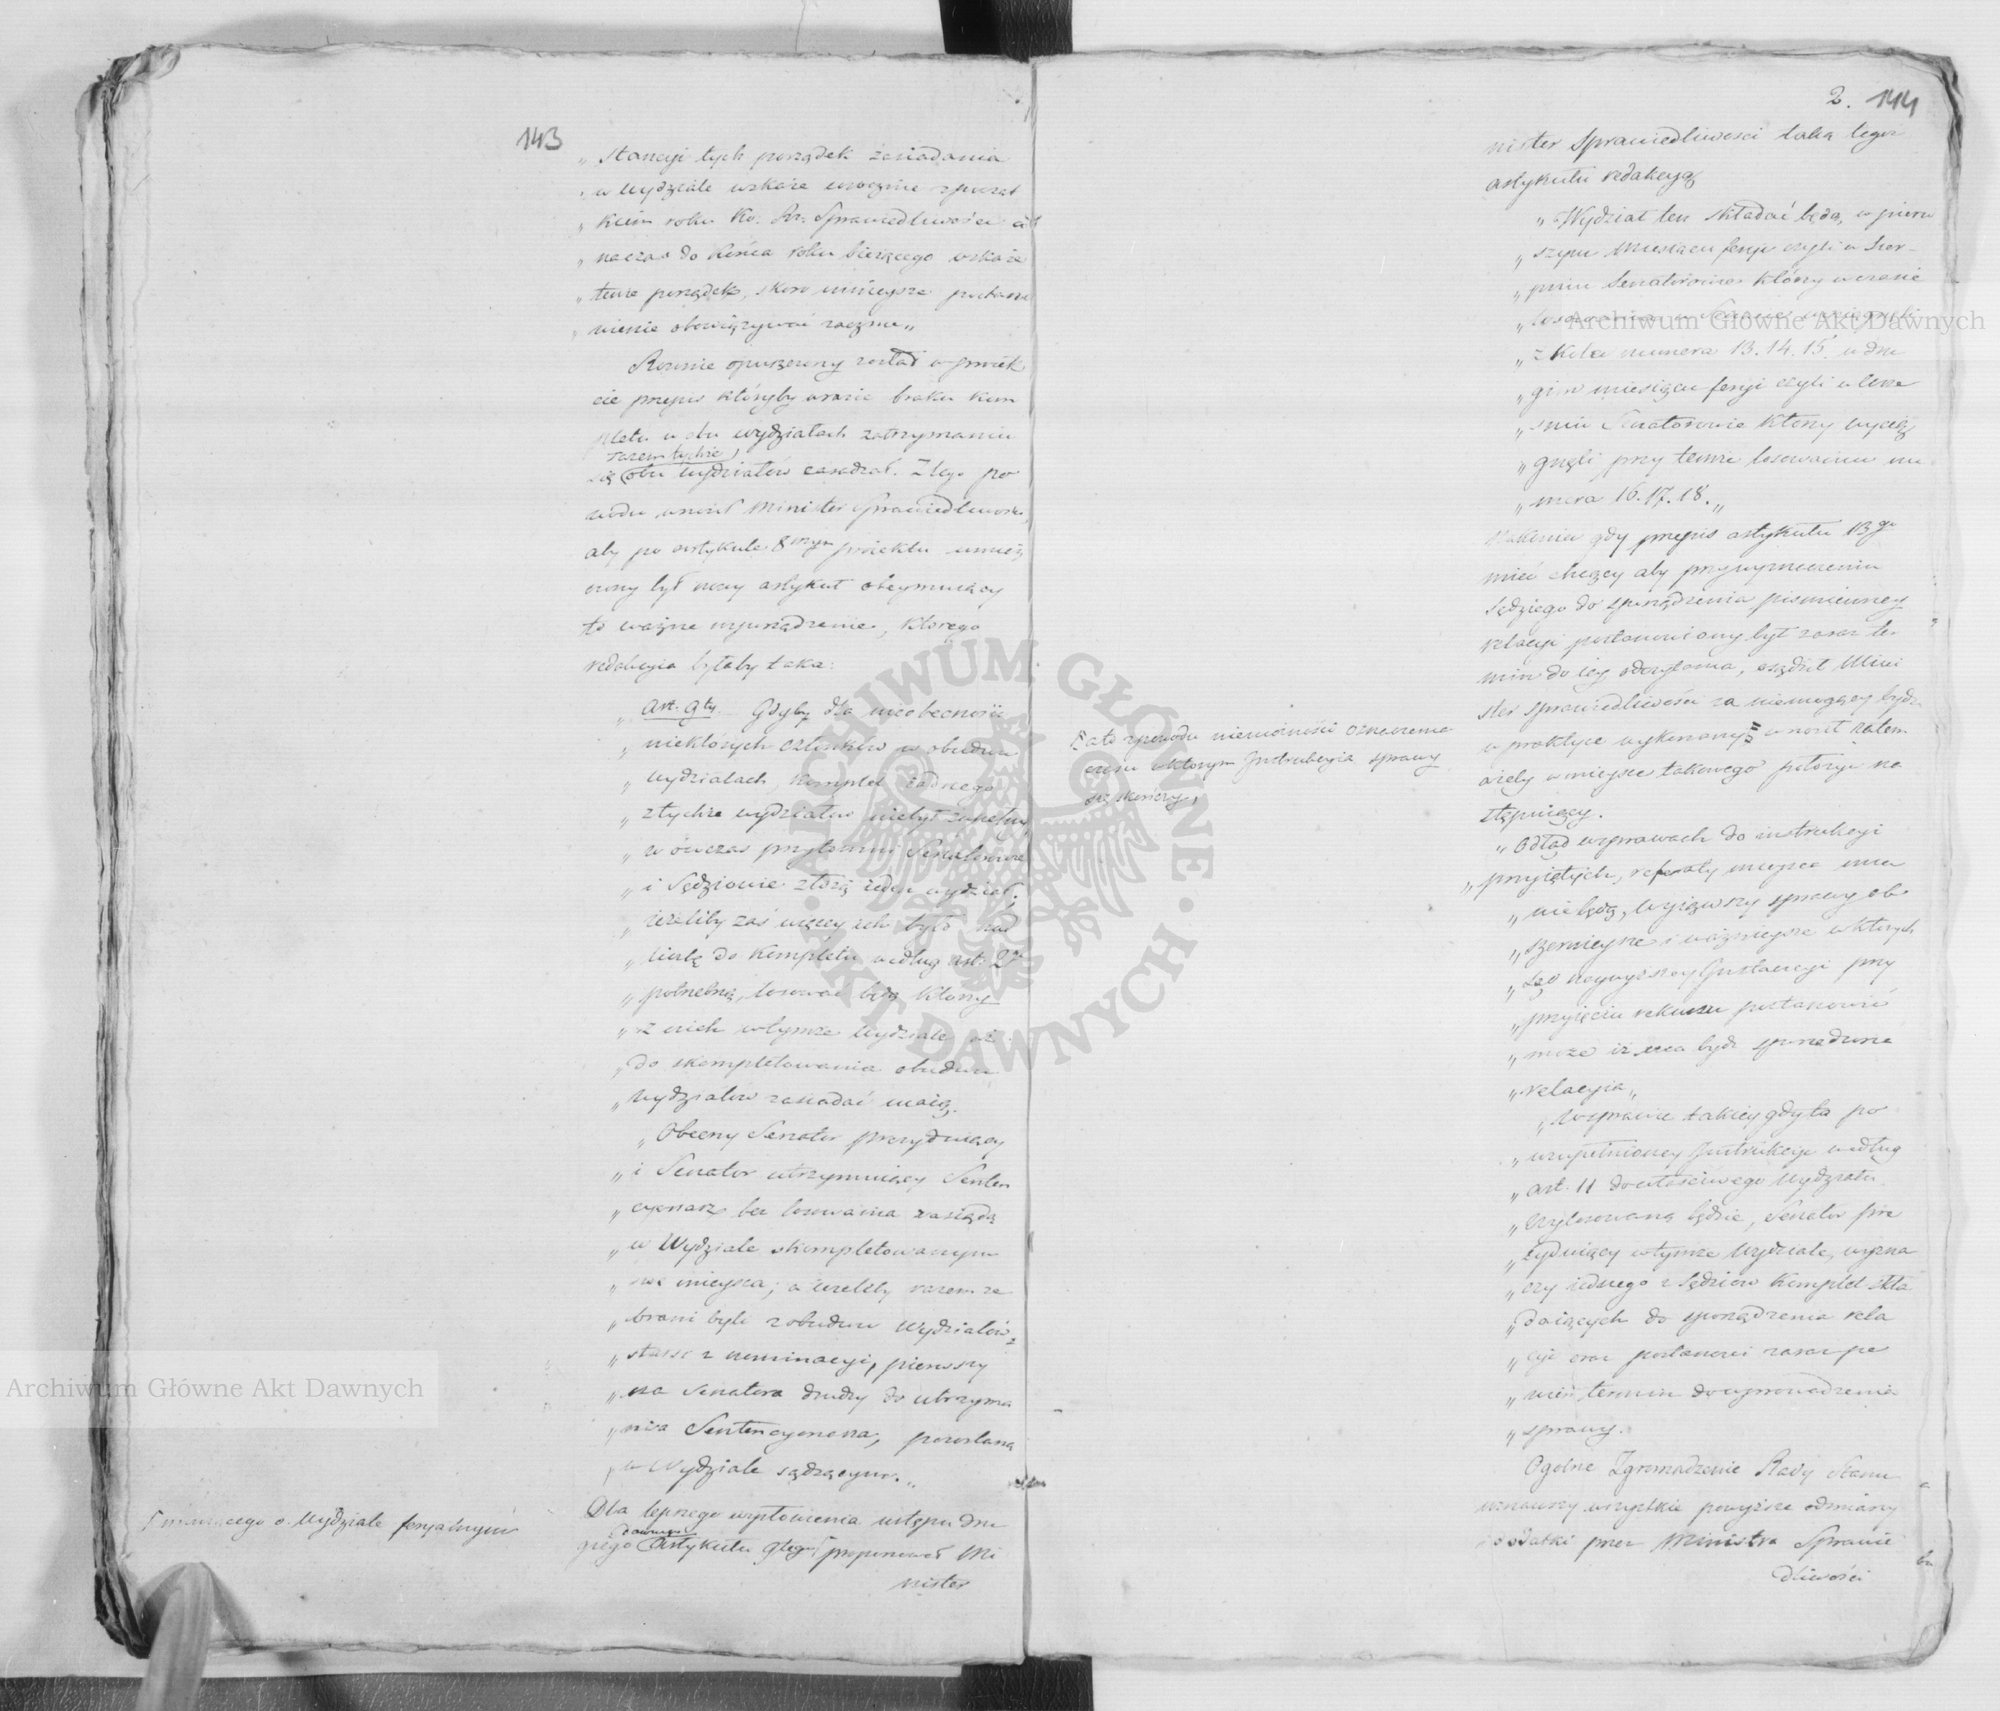 143
„ stancyi tych porządek zasiadania
„ w wydziale wskaże rocznie z począt
„ kiem roku Ko: Spr: Sprawiedliwości
„ naczas do końca roku bieżącego wskaże
„ tenże porządek, skoro ninieysze postano
„ wienie obowiązywać zacznie„
Rownie opuszczony został w proiek
cie przepis któryby w razie braku kom
pletu w obu wydziałach zatrzymaniu
razem tychże,
się obu wydziałów zaradzał. Z tego po
wodu wniósł Minister Sprawiedliwości,
aby po artykule 8mym proiektu umiesz
czony był nowy artykuł obeymuiący
to ważne urządzenie, którego
redakcyia byłaby taka:
„ Art. 9ty. Gdyby dla nieobecności
„ niektórych członków w obudwu
„ wydziałach, komplet żadnego
„ z tychże wydziałów niebył zupełny
„ wówczas przytomni Senatorowie
„ i Sędziowie złożą ieden wydział.
„ ieżeliby zaś więcey ich było nad
„ liczbę do kompletu według art. 2go
„ potrzebną, losować będą którzy
„ z nich w tymże wydziale aż
„ do skompletowania obudwu
„ wydziałów zasiadać maią.
„ Obecny Senator prezyduiący
„ i Senator utrzymuiący Senten
„ cyonarz bez losowania zasiądą
„ w Wydziale skompletowanym
„ swe mieysca; a ieżeliby razem ze
„ brani byli z obudwu wydziałów
„ starsi z nominacyi, pierwszy
„ na Senatora drugi do utrzyma
„ nia Sentencyonarza, pozostaną
„ w Wydziale sądzącym.„
Dla lepszego wysłowienia ustępu dru
giego dawnego artykułu 9tego proponował Mi
nister
maiącego o Wydziale feryalnym
2. 144
nister Sprawiedliwości taką tegoż
artykułu redakcyą
„ Wydział ten składać będą, w pierw
„ szym miesiącu feryi czyli w Sier-
„ pniu Senatorowie którzy w czasie
„ losowania w
„ z koła numera 13. 14. 15. w dru
„ gim miesiącu feryi czyli w Wrze
„ śniu Senatorowie którzy wycią
„ gnęli przy temże losowaniu nu
„ mera 16. 17. 18.„
Nakoniec gdy przepis artykułu 13go
mieć chcący aby przy wyznaczeniu
Sędziego do sporządzenia piśmienney
relacyi postanowiony był zaraz ter
min do iey odczytania, osądził Mini
ster Sprawiedliwości za niemogący bydz
w praktyce wykonany, wnosił zatem
ażeby w mieysce takowego położyć na
stępuiący.
„ Odtąd w sprawach do instrukcyi
„ przyiętych, referaty mieysca mieć
„ nie będą, wyiąwszy sprawy ob
„ szernieysze i ważnieysze w których
„ Sąd Naywyższey Instancyi przy
„ przyięciu rekursu postanowić
„ może iż ma bydz sporządzona
„ relacyia„
„ W sprawie takiey gdy ta po
„ uzupełnioney Instrukcyi według
„ art. 11 do właściwego Wydziału
„ wylosowaną będzie, Senator pre
„ zyduiący w tymże Wydziale, wyzna
„ czy iednego z Sędziów Komplet skła
„ daiących do sporządzenia rela
„ cyi oraz postanowi zaraz pe
„ wien termin do wprowadzenia
„ sprawy.
Ogólne Zgromadzenie Rady Stanu
uznawszy wszystkie powyższe odmiany
i dodatki przez Ministra Sprawie
dliwości
a to z powodu niemożności oznaczenia
czasu w którym Instrukcyia sprawy
się skończy,
Archiwum Główne Akt Dawnych
Archiwum Główne Akt Dawnych
ARCHIWUM GŁÓWNE · AKT DAWNYCH ·